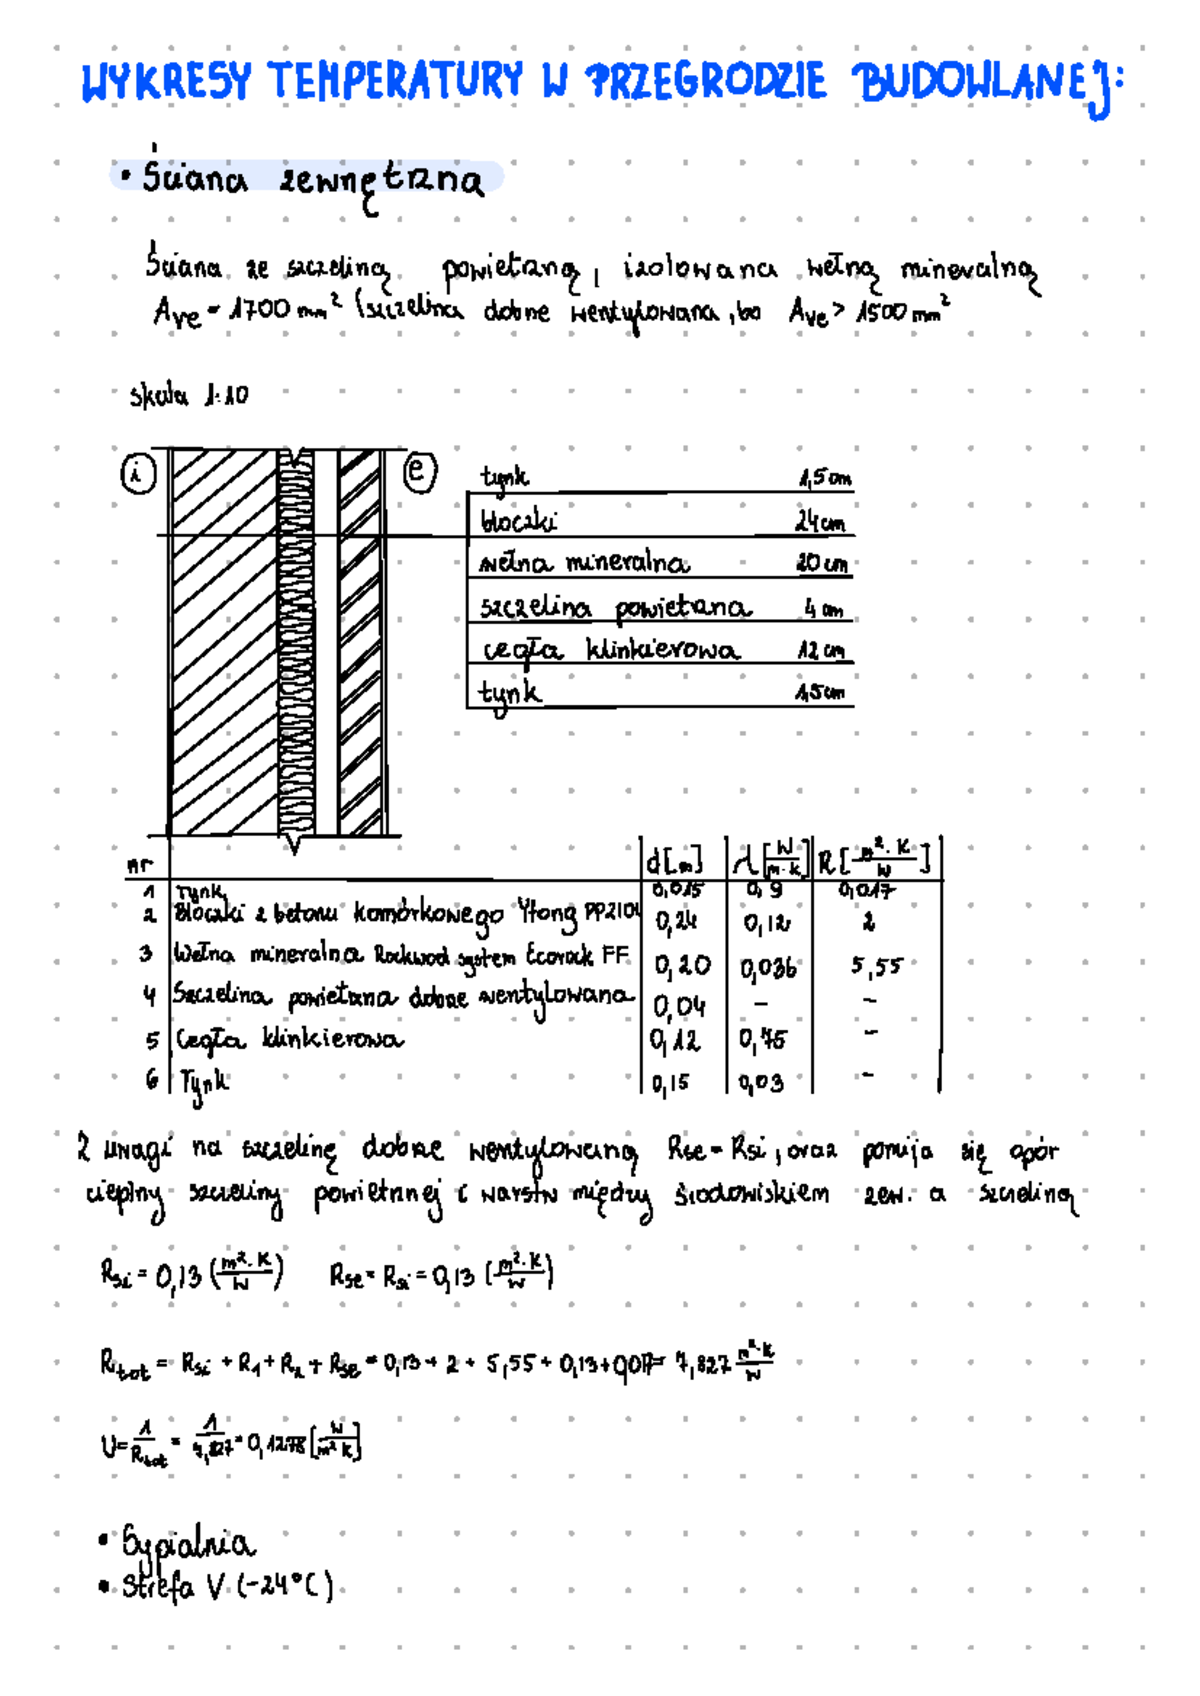 WYKRESY TEMPERATURY W PRZEGRODZIE BUDOWLANEJ:
• Ściana zewnętrzna
Ściana ze szczeliną powietrzną, izolowana wełną mineralną
Ave = 1700 mm² (szczelina dobrze wentylowana, bo Ave > 1500 mm²
skala 1:10
i e
tynk 1,5 cm
bloczki 24 cm
wełna mineralna 20 cm
szczelina powietrzna 4 cm
cegła klinkierowa 12 cm
tynk 1,5 cm
nr d [m] λ [W/m·K] R [m²·K/W]
1 Tynk 0,015 0,9 0,017
2 Bloczki z betonu komórkowego Ytong PP2104 0,24 0,12 2
3 Wełna mineralna Rockwool system Ecorock FF 0,20 0,036 5,55
4 Szczelina powietrzna dobrze wentylowana 0,04 – –
5 Cegła klinkierowa 0,12 0,75 –
6 Tynk 0,15 0,03 –
Z uwagi na szczelinę dobrze wentylowaną Rse = Rsi, oraz pomija się opór
cieplny szczeliny powietrznej i warstw między środowiskiem zew. a szczeliną
Rsi = 0,13 (m²·K/W) Rse = Rsi = 0,13 (m²·K/W)
Rtot = Rsi + R1 + R2 + Rse = 0,13 + 2 + 5,55 + 0,13 + 0,017 = 7,827 m²·K/W
U = 1/Rtot = 1/7,827 = 0,1278 [W/m²K]
• Sypialnia
• Strefa V (-24°C)